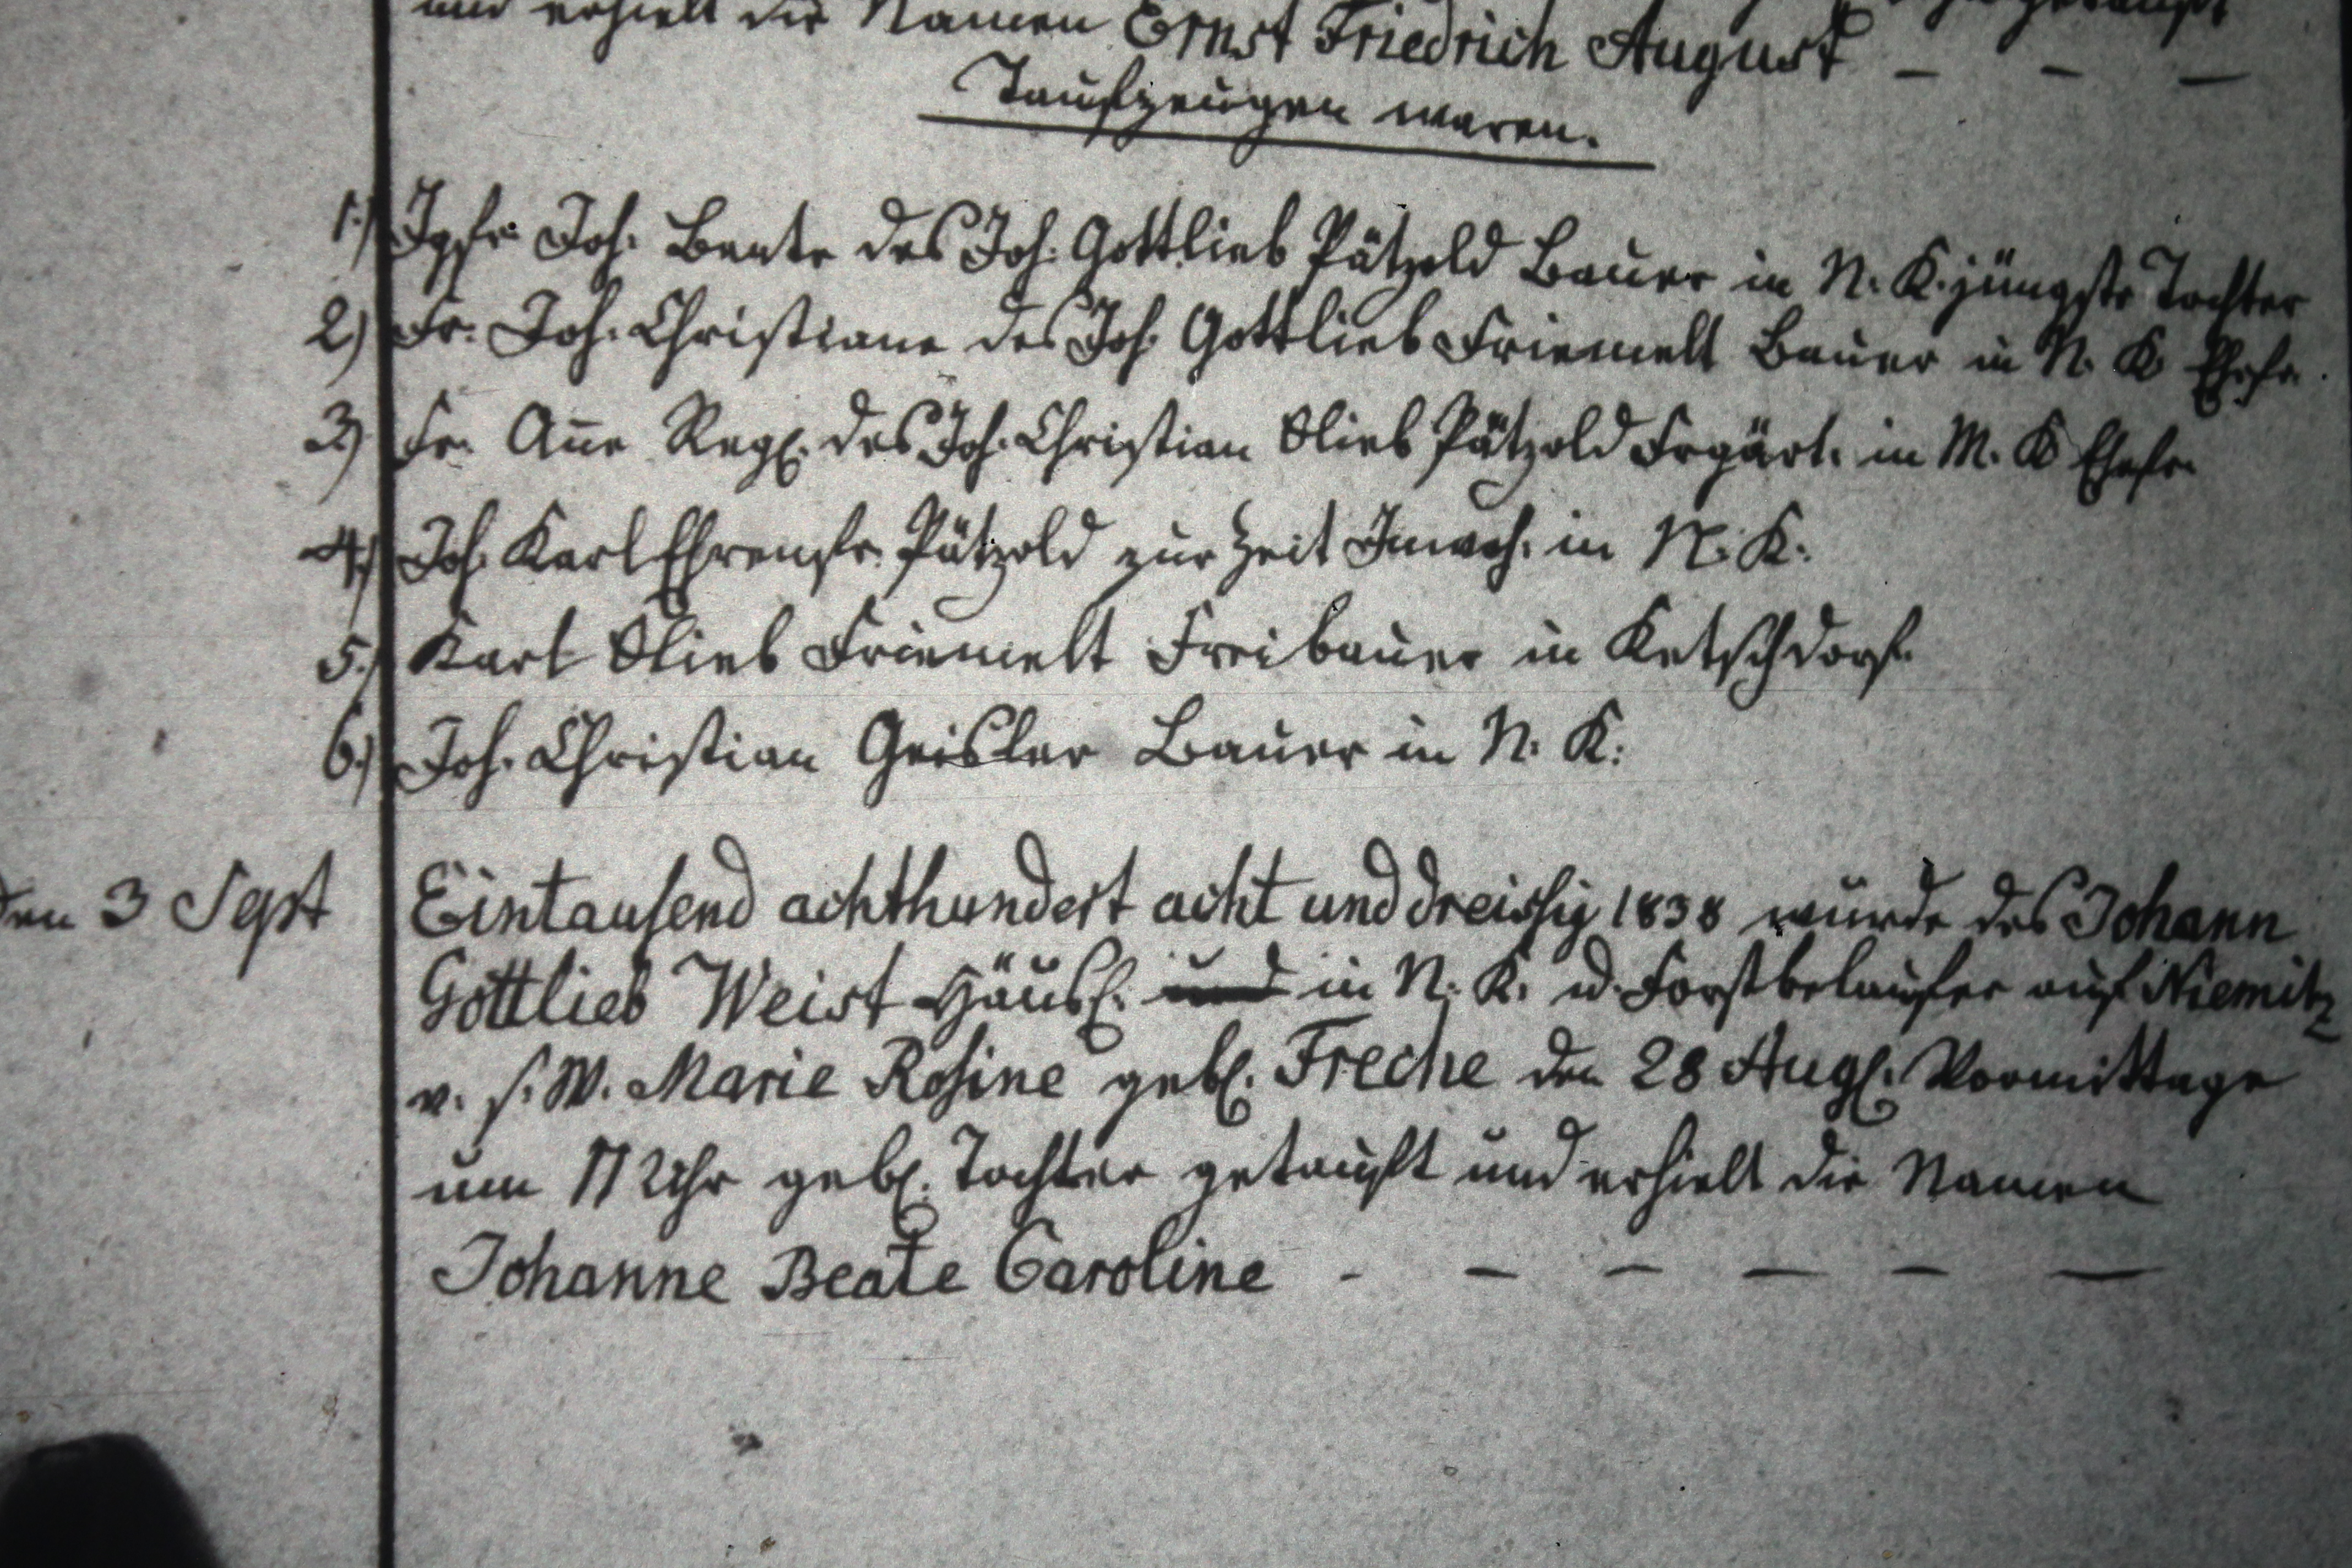 und erhielt die Namen Ernst Friedrich August – – –
Taufzeugen waren.
1.) Igfr. Joh. Beate des Joh. Gottlieb Pätzold Bauer in N. K. jüngste Tochter
2) Fr. Joh. Christiane des Joh. Gottlieb Friemelt Bauer in N. K. Ehefr.
3) Fr. Añe Regl. des Joh. Christian Glieb Pätzold Frgärt. in M. K Ehefr.
4.) Joh. Karl Ehrenfr. Pätzold zur Zeit Inwoh. in N. K.
5.) Karl Glieb Friemelt Freibauer in Ketschdorf.
6.) Joh. Christian Geisler Bauer in N. K.
den 3 Sept Eintausend achthundert acht und dreissig 1838 wurde des Johann
Gottlieb Weist Häusl. und in N. K. u. Forstbelaufer auf Niemitz
v. s. W. Marie Rosine gebl. Freche den 28 Augl. Vormittage
um 11 Uhr gebl. Tochter getauft und erhielt die Namen
Johanne Beate Caroline - – – – – –